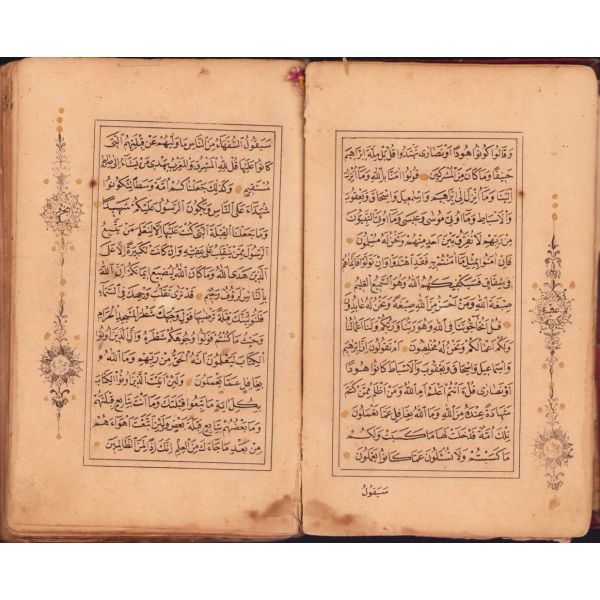 وَقَالُوا كُونُوا هُودًا اَوْ نَصَارٰى تَهْتَدُوا قُلْ بَلْ مِلَّةَ اِبْرٰهِيمَ
حَنِيفًا وَمَا كَانَ مِنَ الْمُشْرِكِينَ قُولُوا اٰمَنَّا بِاللّٰهِ وَمَا اُنْزِلَ
اِلَيْنَا وَمَا اُنْزِلَ اِلٰى اِبْرٰهِيمَ وَاِسْمٰعِيلَ وَاِسْحَاقَ وَيَعْقُوبَ
وَالْاَسْبَاطِ وَمَا اُوتِيَ مُوسٰى وَعِيسٰى وَمَا اُوتِيَ النَّبِيُّونَ
مِنْ رَبِّهِمْ لَا نُفَرِّقُ بَيْنَ اَحَدٍ مِنْهُمْ وَنَحْنُ لَهُ مُسْلِمُونَ
فَاِنْ اٰمَنُوا بِمِثْلِ مَا اٰمَنْتُمْ بِهِ فَقَدِ اهْتَدَوْا وَاِنْ تَوَلَّوْا فَاِنَّمَا هُمْ
فِي شِقَاقٍ فَسَيَكْفِيكَهُمُ اللّٰهُ وَهُوَ السَّمِيعُ الْعَلِيمُ
صِبْغَةَ اللّٰهِ وَمَنْ اَحْسَنُ مِنَ اللّٰهِ صِبْغَةً وَنَحْنُ لَهُ عَابِدُونَ
قُلْ اَتُحَاجُّونَنَا فِي اللّٰهِ وَهُوَ رَبُّنَا وَرَبُّكُمْ وَلَنَا اَعْمَالُنَا
وَلَكُمْ اَعْمَالُكُمْ وَنَحْنُ لَهُ مُخْلِصُونَ اَمْ تَقُولُونَ اِنَّ اِبْرٰهِيمَ
وَاِسْمٰعِيلَ وَاِسْحَاقَ وَيَعْقُوبَ وَالْاَسْبَاطَ كَانُوا هُودًا
اَوْ نَصَارٰى قُلْ ءَاَنْتُمْ اَعْلَمُ اَمِ اللّٰهُ وَمَنْ اَظْلَمُ مِمَّنْ كَتَمَ
شَهَادَةً عِنْدَهُ مِنَ اللّٰهِ وَمَا اللّٰهُ بِغَافِلٍ عَمَّا تَعْمَلُونَ
تِلْكَ اُمَّةٌ قَدْ خَلَتْ لَهَا مَا كَسَبَتْ وَلَكُمْ
مَا كَسَبْتُمْ وَلَا تُسْئَلُونَ عَمَّا كَانُوا يَعْمَلُونَ
سَيَقُولُ
سَيَقُولُ السُّفَهَاءُ مِنَ النَّاسِ مَا وَلّٰيهُمْ عَنْ قِبْلَتِهِمُ الَّتِي
كَانُوا عَلَيْهَا قُلْ لِلّٰهِ الْمَشْرِقُ وَالْمَغْرِبُ يَهْدِي مَنْ يَشَاءُ اِلٰى صِرَاطٍ
مُسْتَقِيمٍ وَكَذٰلِكَ جَعَلْنَاكُمْ اُمَّةً وَسَطًا لِتَكُونُوا
شُهَدَاءَ عَلَى النَّاسِ وَيَكُونَ الرَّسُولُ عَلَيْكُمْ شَهِيدًا
وَمَا جَعَلْنَا الْقِبْلَةَ الَّتِي كُنْتَ عَلَيْهَا اِلَّا لِنَعْلَمَ مَنْ يَتَّبِعُ
الرَّسُولَ مِمَّنْ يَنْقَلِبُ عَلٰى عَقِبَيْهِ وَاِنْ كَانَتْ لَكَبِيرَةً اِلَّا عَلَى
الَّذِينَ هَدَى اللّٰهُ وَمَا كَانَ اللّٰهُ لِيُضِيعَ اِيمَانَكُمْ اِنَّ اللّٰهَ
بِالنَّاسِ لَرَؤُفٌ رَحِيمٌ قَدْ نَرٰى تَقَلُّبَ وَجْهِكَ فِي السَّمَاءِ
فَلَنُوَلِّيَنَّكَ قِبْلَةً تَرْضٰيهَا فَوَلِّ وَجْهَكَ شَطْرَ الْمَسْجِدِ الْحَرَامِ
وَحَيْثُ مَا كُنْتُمْ فَوَلُّوا وُجُوهَكُمْ شَطْرَهُ وَاِنَّ الَّذِينَ اُوتُوا
الْكِتَابَ لَيَعْلَمُونَ اَنَّهُ الْحَقُّ مِنْ رَبِّهِمْ وَمَا اللّٰهُ
بِغَافِلٍ عَمَّا يَعْمَلُونَ وَلَئِنْ اَتَيْتَ الَّذِينَ اُوتُوا الْكِتَابَ
بِكُلِّ اٰيَةٍ مَا تَبِعُوا قِبْلَتَكَ وَمَا اَنْتَ بِتَابِعٍ قِبْلَتَهُمْ
وَمَا بَعْضُهُمْ بِتَابِعٍ قِبْلَةَ بَعْضٍ وَلَئِنِ اتَّبَعْتَ اَهْوَاءَهُمْ
مِنْ بَعْدِ مَا جَاءَكَ مِنَ الْعِلْمِ اِنَّكَ اِذًا لَمِنَ الظَّالِمِينَ